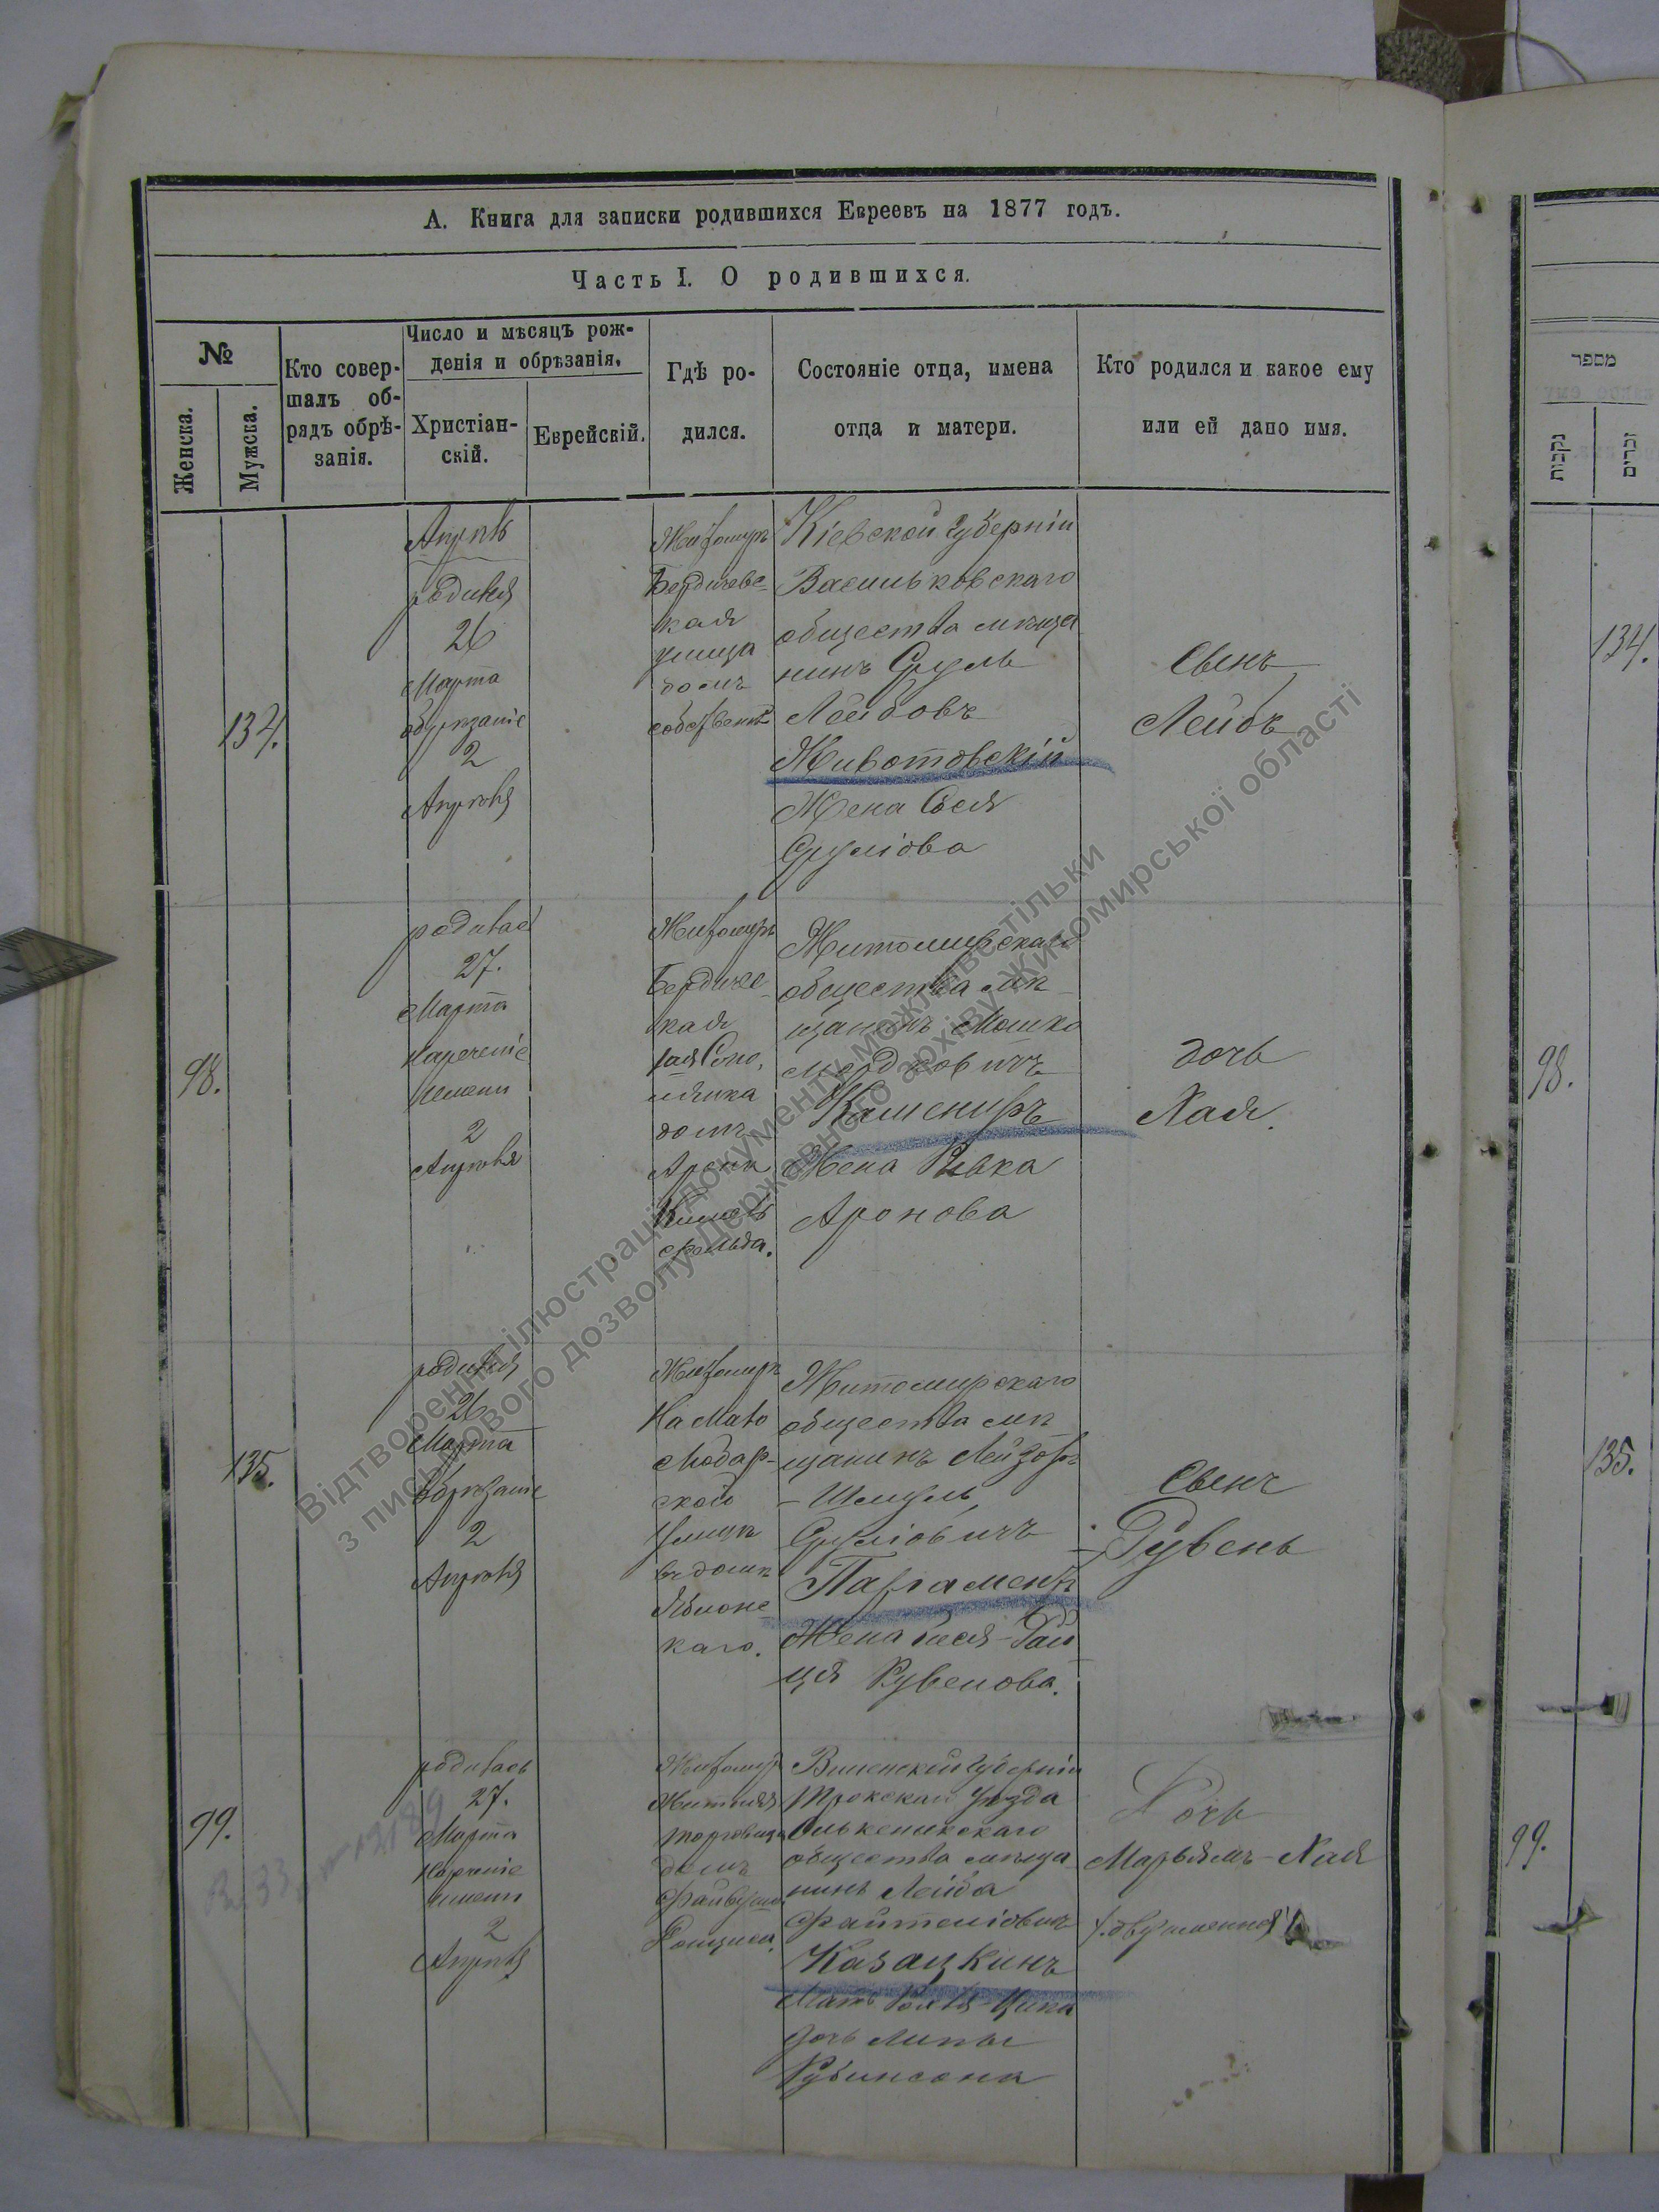 А. Книга для записки родившихся Евреевъ на 1877 годъ.
Часть I. О родившихся.
№
Женска.
Мужска.
Кто совер-
шалъ об-
рядъ обрѣ-
занія.
Число и мѣсяцъ рож-
денія и обрѣзанія.
Христіан-
скій.
Еврейскій.
Гдѣ ро-
дился.
Состояніе отца, имена
отца и матери.
Кто родился и какое ему
или ей дано имя.
134.
Апрель
родился
26
Марта
обрезаніе
2
Апреля
Житомиръ
Бердичевс-
кая
улица
домъ
Кіевской губерніи
Васильковскаго
общества меща
нинъ Сруль
Лейбовъ
Животовскій
Жена Сося
Сруліова
Сынъ
Лейбъ
98.
родилась
27.
Марта
наречение
имени
2
Апреля
Житомиръ
Бердиче-
кая
домъ
Арона
Житомирскаго
общества ме-
щанинъ Мошко
Мордковичъ
Камениръ
Жена Ривка
Аронова
дочь
Хая.
135.
родился
26
Марта
Обрезаніе
2
Апреля
Житомиръ
На Мало
Чюдар-
ской
улице
въ доме
Яблонс-
каго.
Житомирскаго
общества ме
щанинъ Лейзоръ
- Шмуль
Сруліовичъ
Паргаментъ
Жена Бася-Рай
ця Рувенова.
Сынъ
Рувенъ
99.
родилась
27.
Марта
наречение
имени
2
Апреля
Житомир
Житняя
торговица
домъ
Виленской губерніи
Трокскаи уезда
Олькеникскаго
общества меща
нинъ Лейба
Файтеліовичъ
Казацкинъ
Мать
дочь Липы
Рубинсона
Дочь
Марьямъ-Хая
/:двуименная:/
מספר
נקבות
זכרים
134.
98.
135.
99.
Відтворення ілюстрації документу можливе тільки
з письмового дозволу Державного архіву Житомирської області